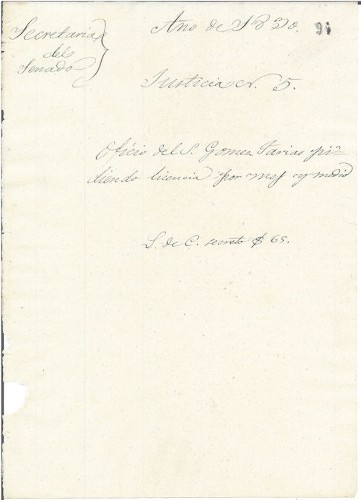 Secretaria
del
Senado
Año de 1830.
94
Justicia N. 5.
Oficio del S. Gomez Farias pi-
diendo licencia por mes y medio
L. de C. secreto $ 65.